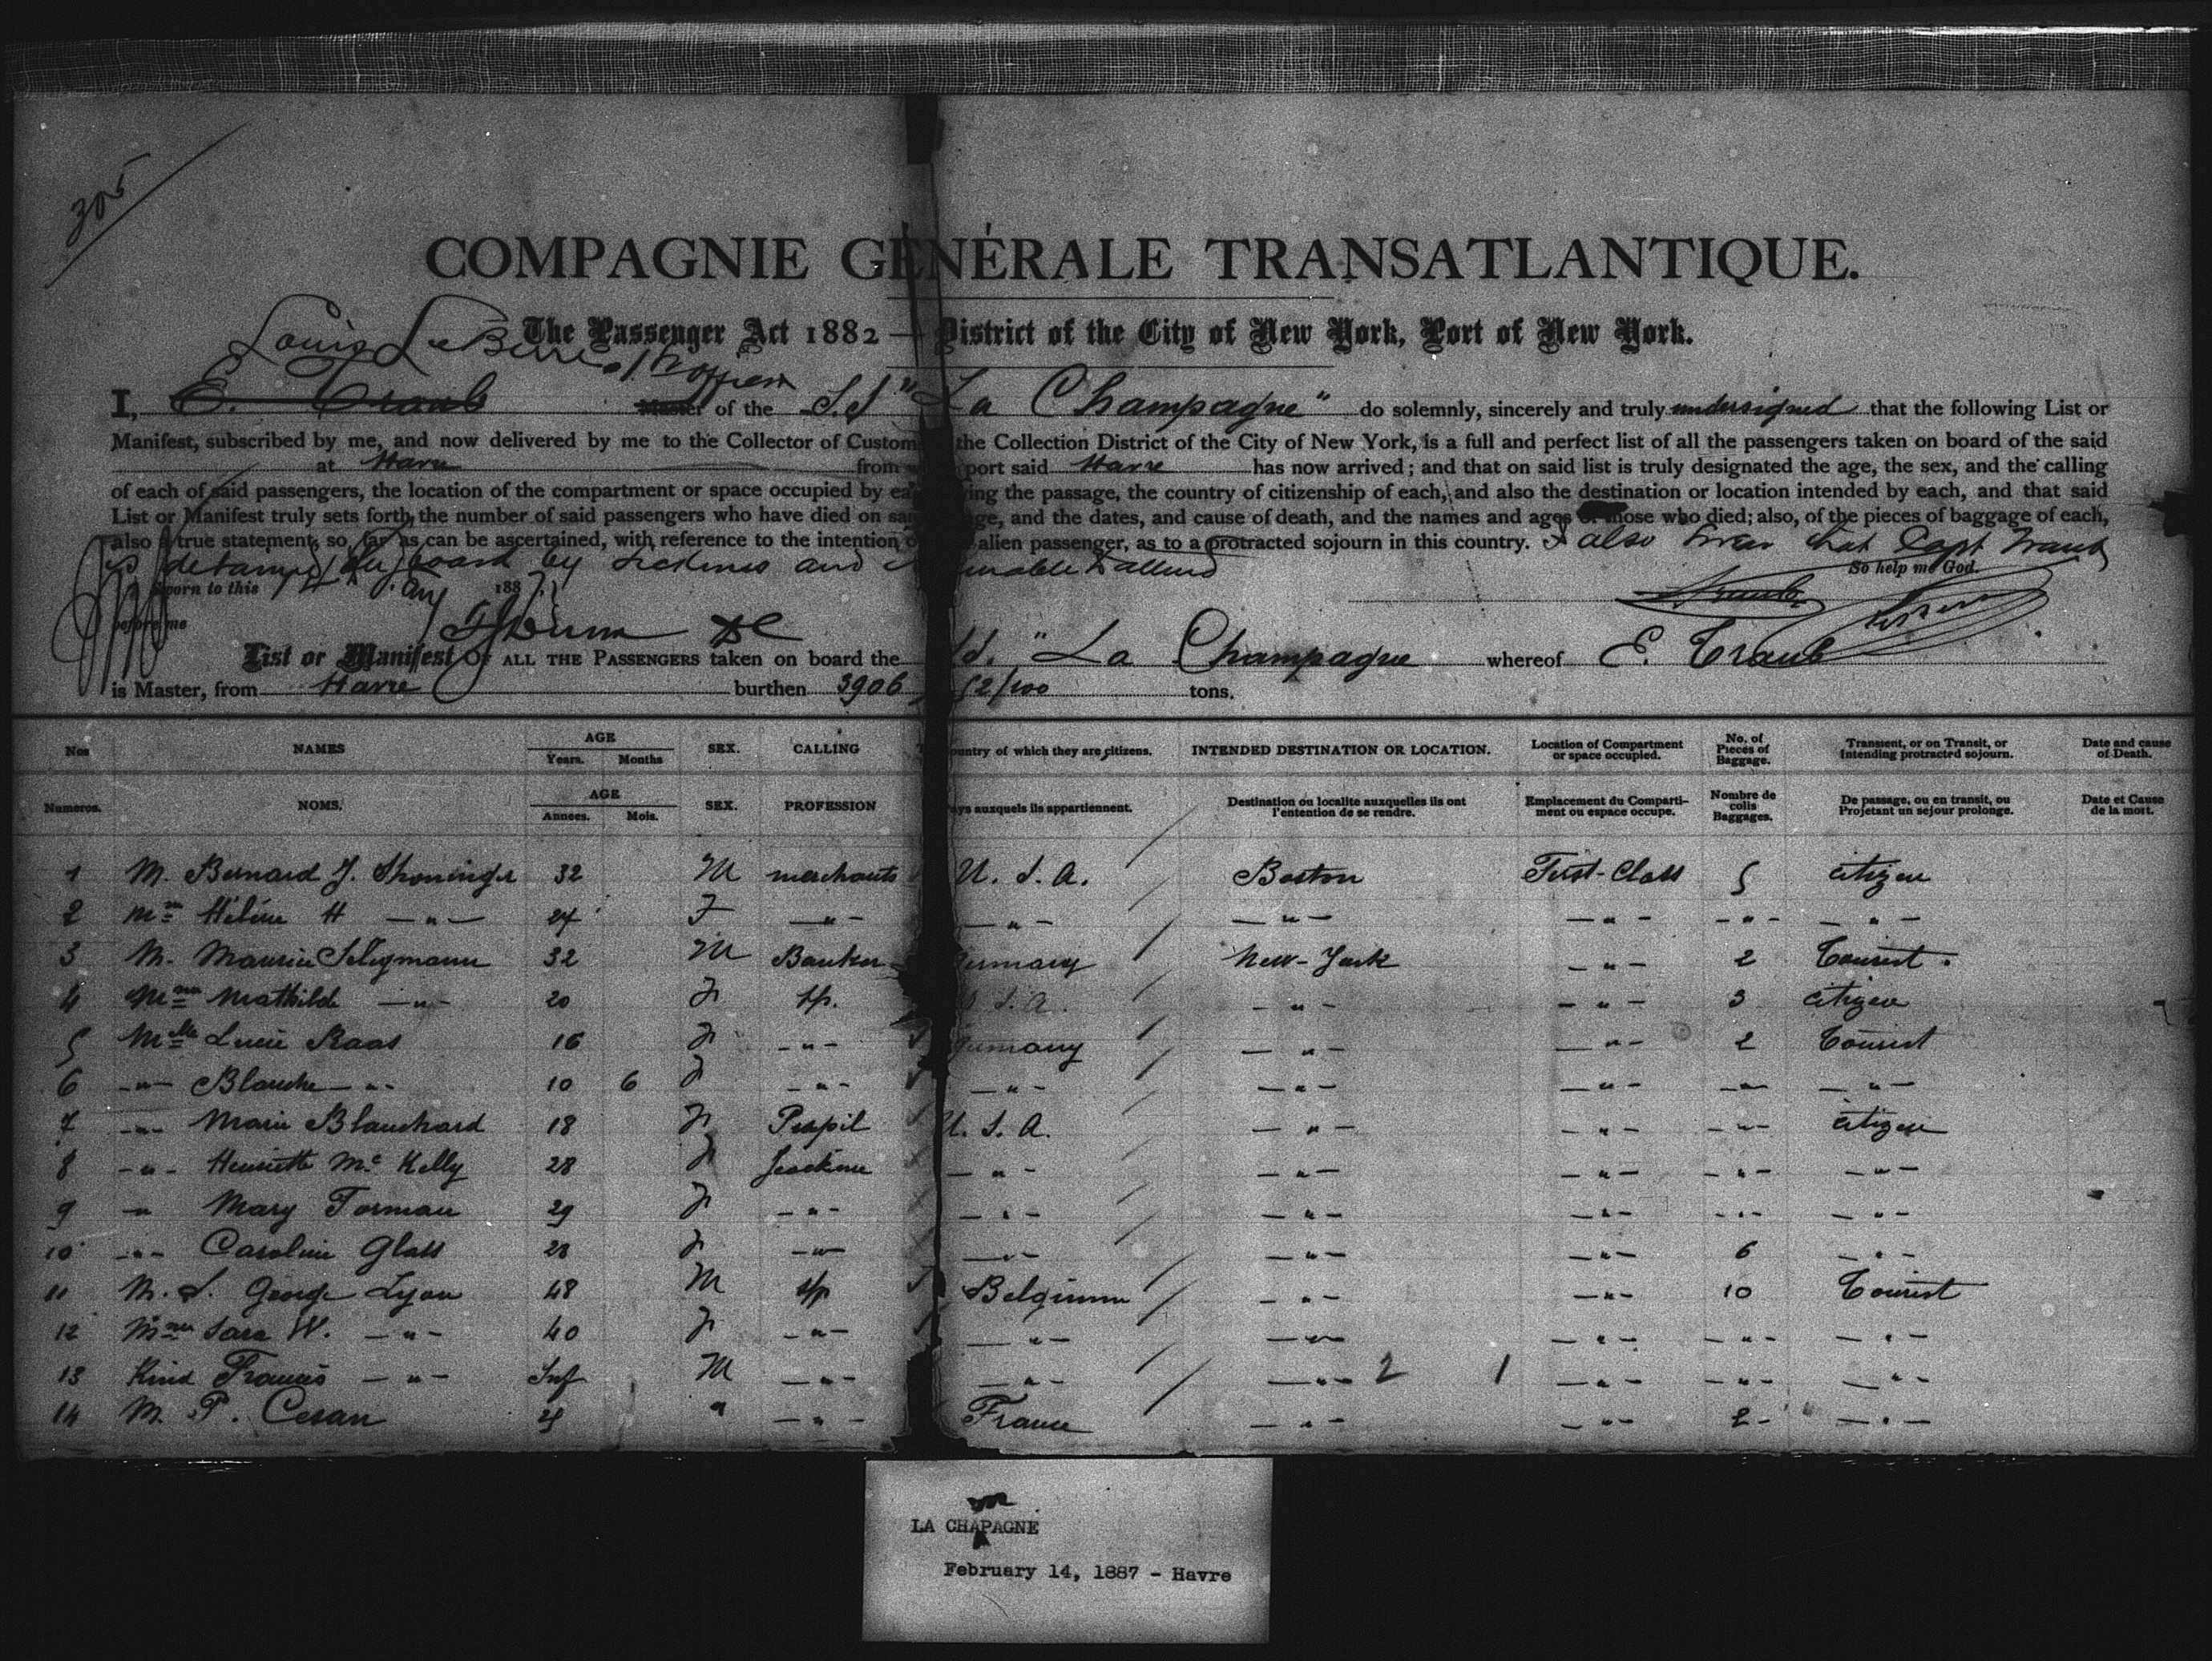 305
COMPAGNIE GÉNÉRALE TRANSATLANTIQUE.
The Passenger Act 1882 — District of the City of New York, Port of New York.
Louis
I, E. Traub Master of the S.S "La Champagne" do solemnly, sincerely and truly undersigned that the following List or
Manifest, subscribed by me, and now delivered by me to the Collector of Custom the Collection District of the City of New York, is a full and perfect list of all the passengers taken on board of the said
at Havre from port said Havre has now arrived; and that on said list is truly designated the age, the sex, and the calling
of each of said passengers, the location of the compartment or space occupied by ing the passage, the country of citizenship of each, and also the destination or location intended by each, and that said
List or Manifest truly sets forth, the number of said passengers who have died on and the dates, and cause of death, and the names and ages of those who died; also, of the pieces of baggage of each,
also a true statement, so far as can be ascertained, with reference to the intention alien passenger, as to a protracted sojourn in this country. I also swear that Capt Traub
is detained on board by sickness and unable to attend
So help me God.
Sworn to this 14 188
before me
List or Manifest OF ALL THE PASSENGERS taken on board the "La Champagne whereof E. Traub
is Master, from Havre burthen 3906 52/100 tons.
Nos NAMES AGE Years. Months SEX. CALLING ountry of which they are citizens. INTENDED DESTINATION OR LOCATION. Location of Compartment or space occupied. No. of Pieces of Baggage. Transient, or on Transit, or Intending protracted sojourn. Date and cause of Death.
Numeros. NOMS. AGE Annees. Mois. SEX. PROFESSION ays auxquels ils appartiennent. Destination ou localite auxquelles ils ont l'entention de se rendre. Emplacement du Comparti-ment ou espace occupe. Nombre de colis Baggages. De passage, ou en transit, ou Projetant un sejour prolonge. Date et Cause de la mort.
1 M. Bernard J. Shoninger 32 M merchants U. S. A. Boston First-Class 5 citizen
2 Mme Hélène H —"— 24 F —"— —"— —"— —"— —"— —"—
3 M. Maurice Seligmann 32 M Banker Germany New-York —"— 2 Tourist.
4 Mme Mathilde —"— 20 F Sp. S. A. —"— —"— 3 citizen
5 Mlle Lucie Raas 16 F —"— Germany —"— —"— 2 Tourist
6 —"— Blanche —"— 10 6 F —"— —"— —"— —"— —"— —"—
7 —"— Marie Blanchard 18 F Pupil U. S. A. —"— —"— —"— citizen
8 —"— Henriette Mc Kelly 28 F —"— —"— —"— —"— —"—
9 —"— Mary Torman 29 F —"— —"— —"— —"— —"— —"—
10 —"— Caroline Glass 28 F —"— —"— —"— —"— 6 —"—
11 M. S. George Lyon 48 M Sp Belgium —"— —"— 10 Tourist
12 Mme Sara W. —"— 40 F —"— —"— —"— —"— —"— —"—
13 Kind Francis —"— Inf M —"— —"— —"— 2 1 —"— —"— —"—
14 M. P. Cesan " —"— France —"— —"— 2 —"—
LA CHAPAGNE
m
February 14, 1887 - Havre